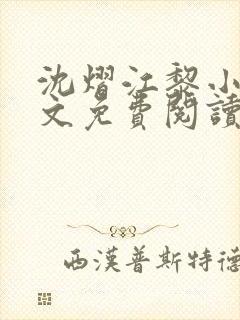 沈熠江黎小
文免費閱讀
西漢普斯特德